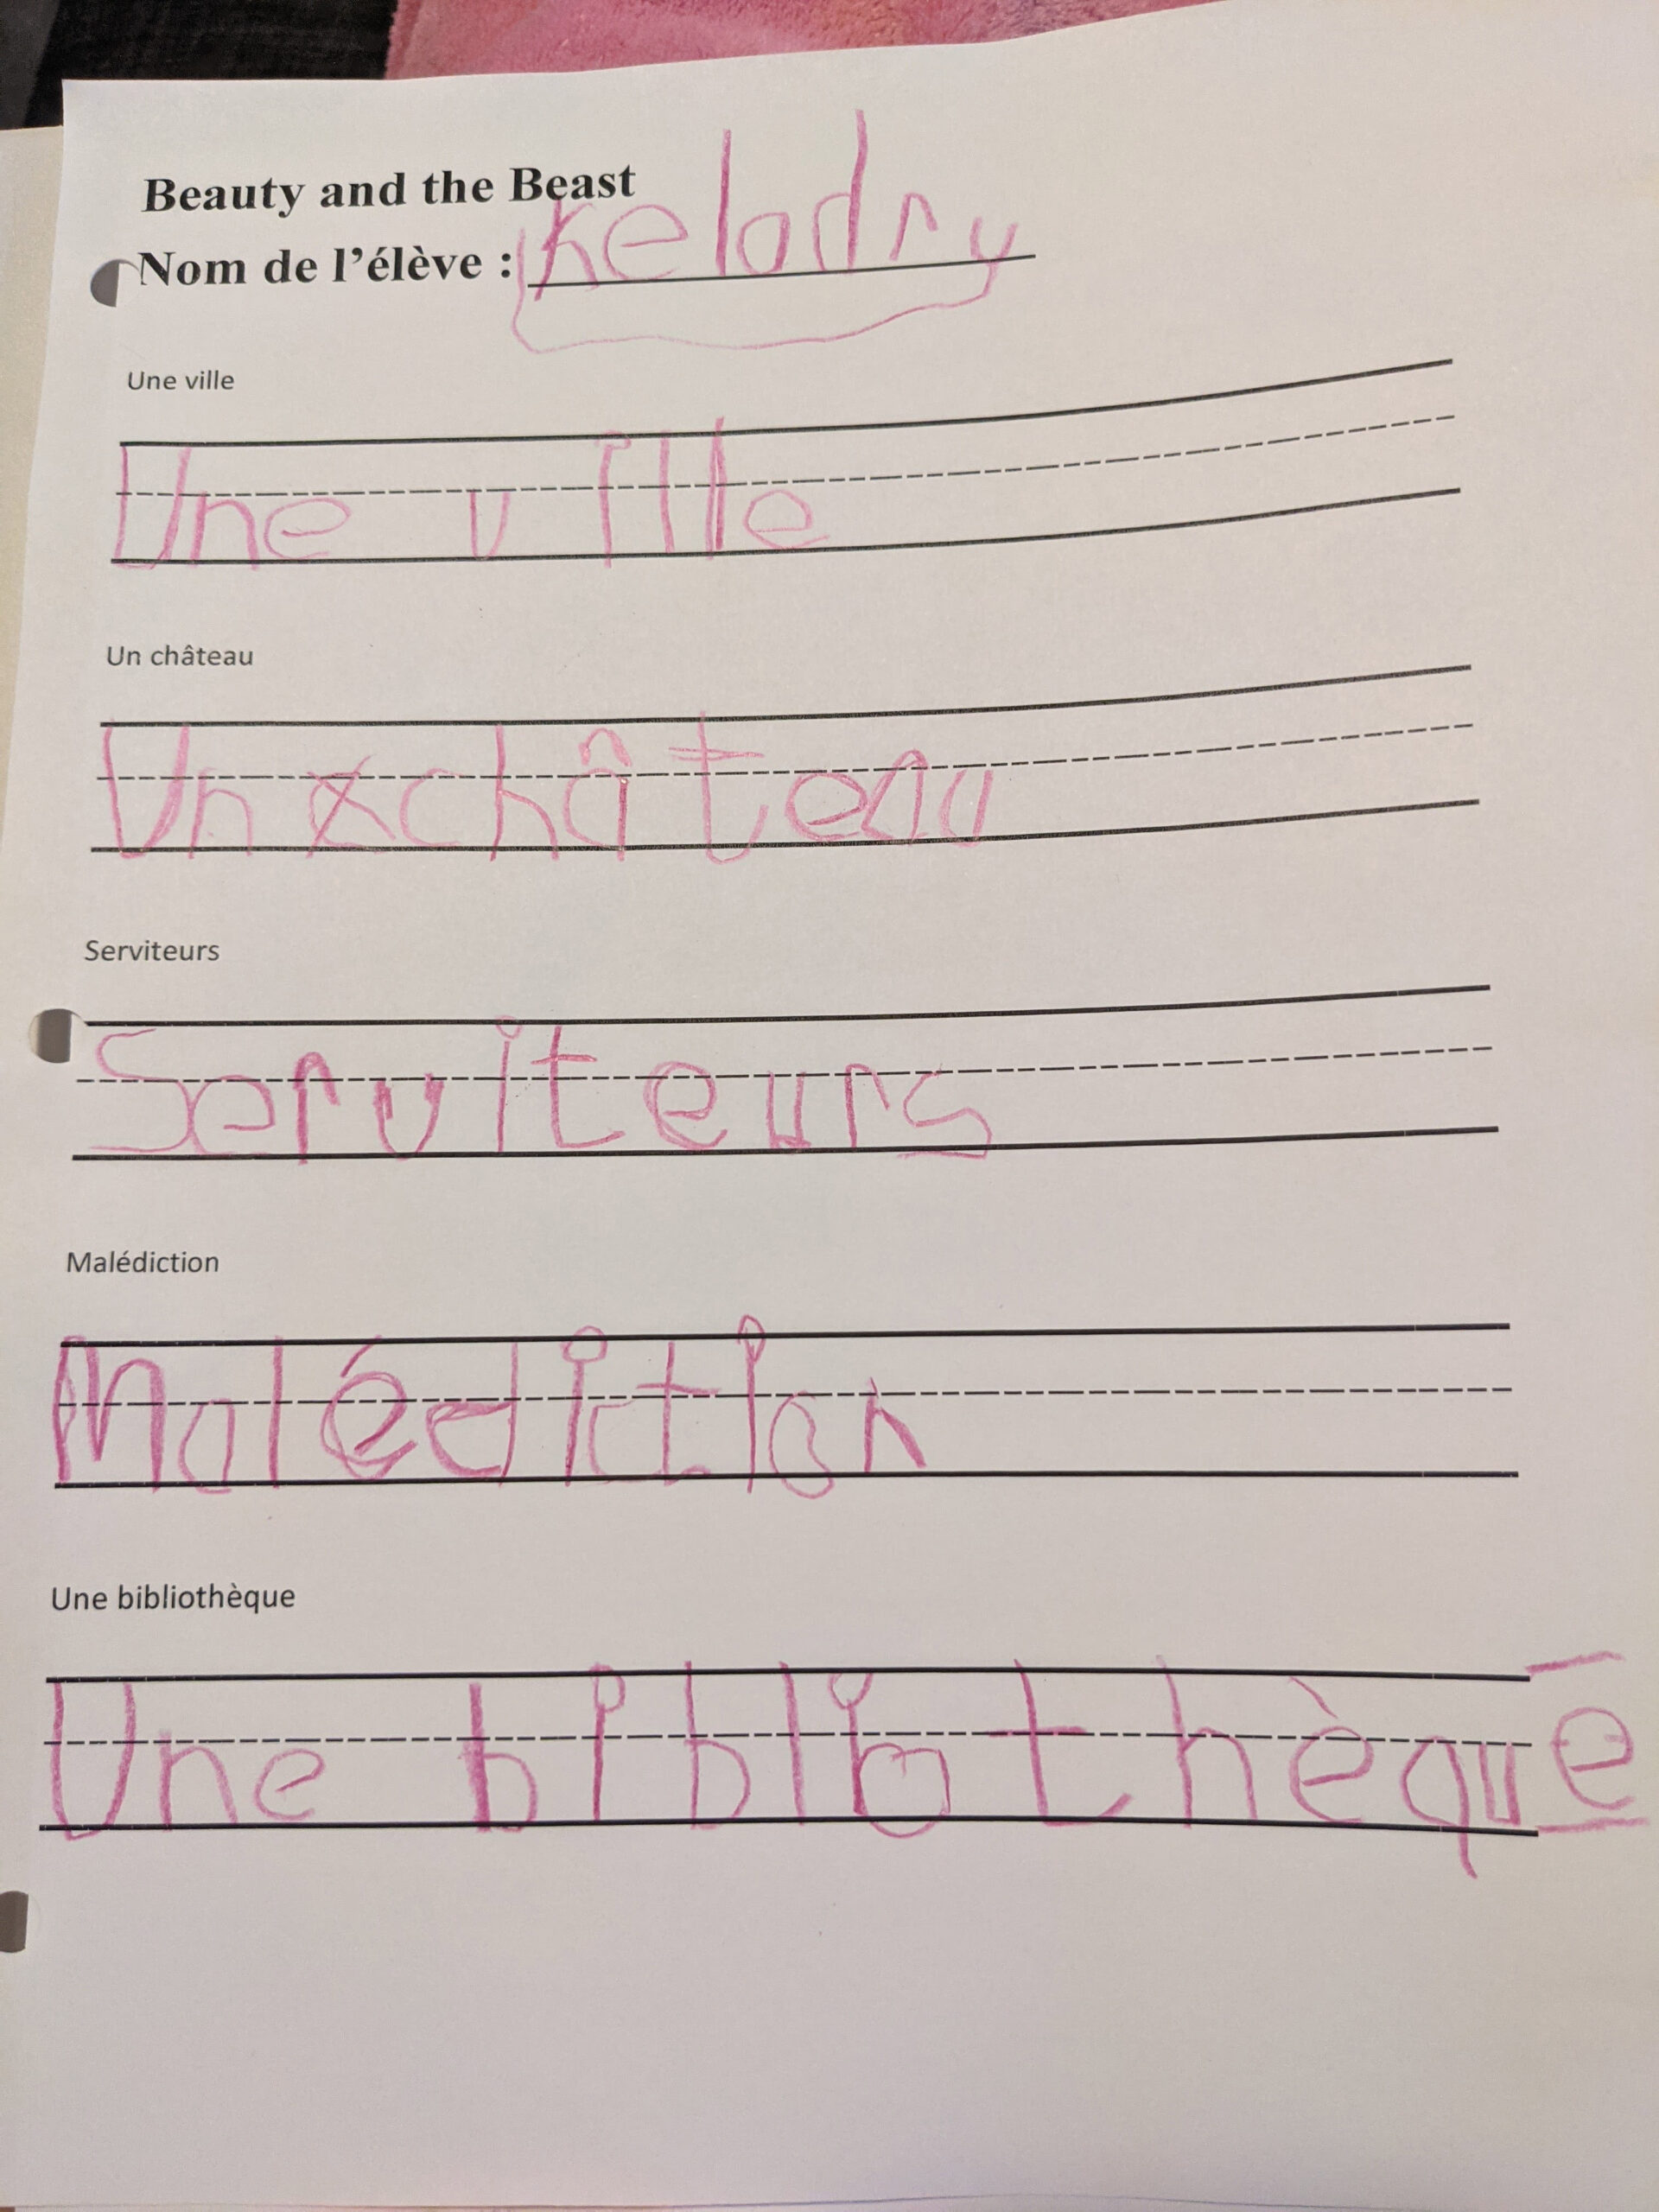 Beauty and the Beast
Nom de l'élève : Keladry
Une ville
Une ville
Un château
Un château
Serviteurs
Serviteurs
Malédiction
Malédiction
Une bibliothèque
Une bibliothèque